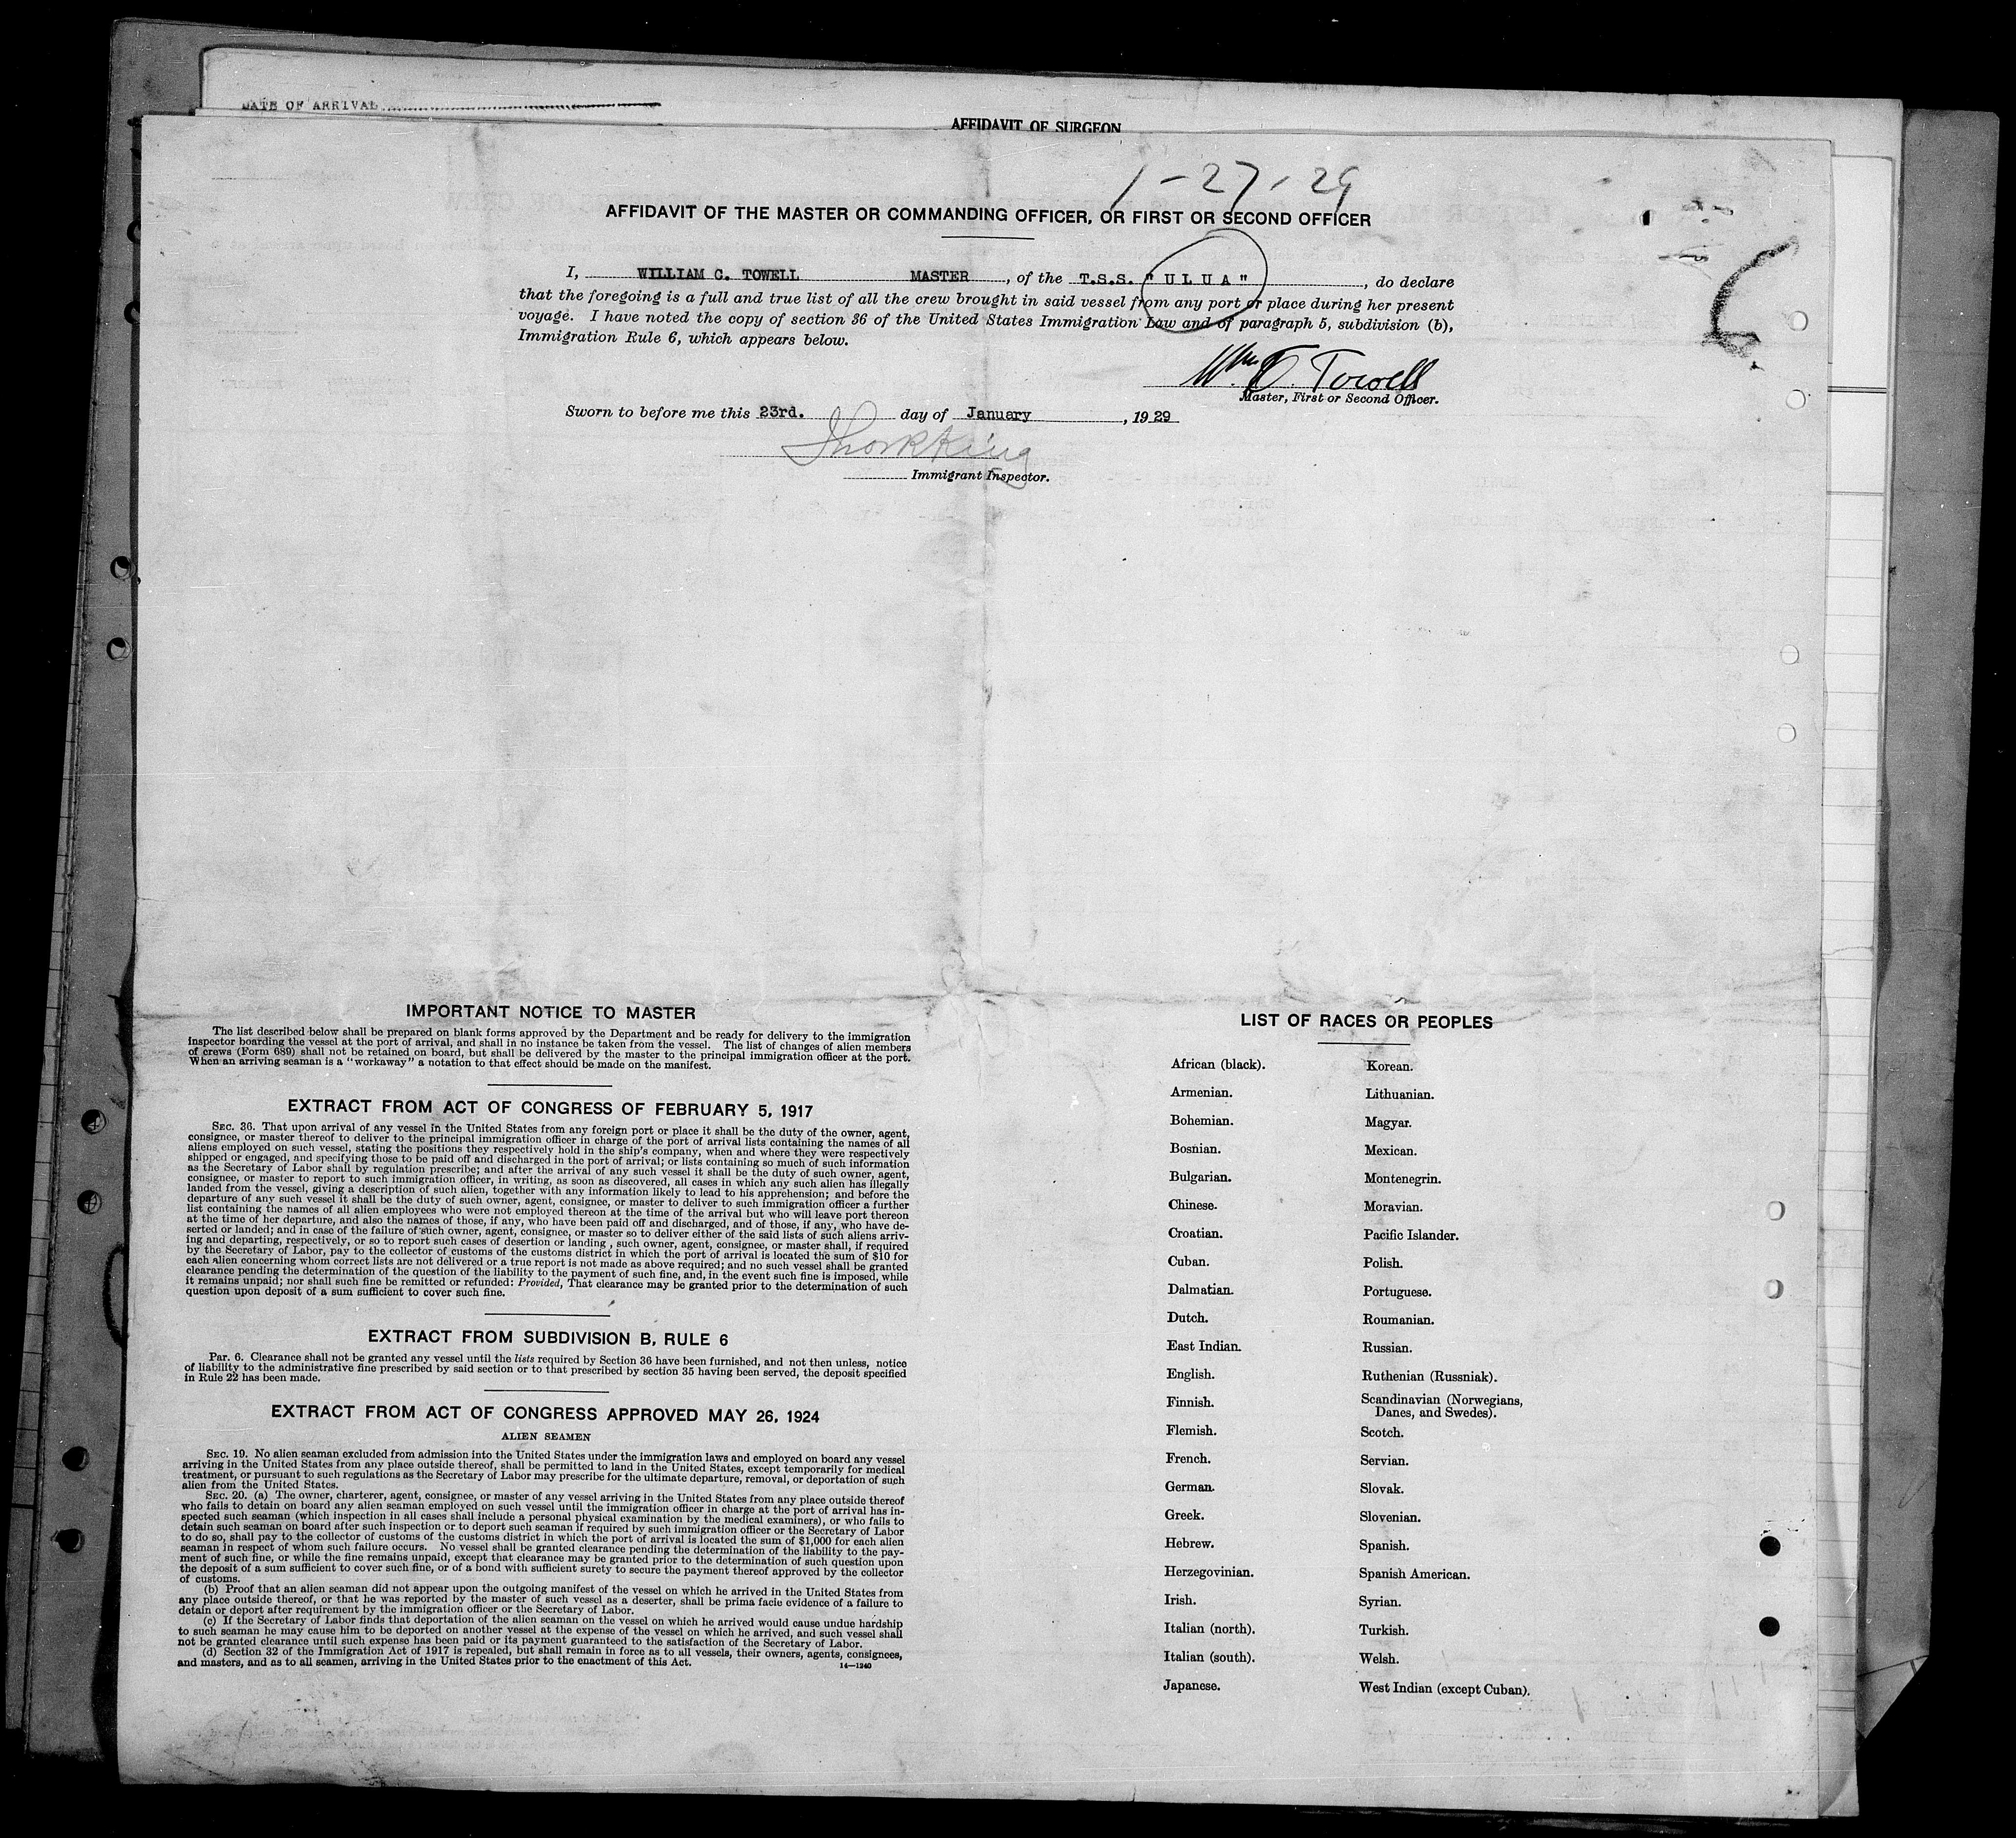 DATE OF ARRIVAL
AFFIDAVIT OF SURGEON
1-27-29
AFFIDAVIT OF THE MASTER OR COMMANDING OFFICER, OR FIRST OR SECOND OFFICER
I, WILLIAM C. TOWELL MASTER, of the T.S.S. "ULUA", do declare
that the foregoing is a full and true list of all the crew brought in said vessel from any port or place during her present
voyage. I have noted the copy of section 36 of the United States Immigration Law and of paragraph 5, subdivision (b),
Immigration Rule 6, which appears below.
Wm. C. Towell
Master, First or Second Officer.
Sworn to before me this 23rd. day of January, 1929
Immigrant Inspector.
IMPORTANT NOTICE TO MASTER
The list described below shall be prepared on blank forms approved by the Department and be ready for delivery to the immigration
inspector boarding the vessel at the port of arrival, and shall in no instance be taken from the vessel. The list of changes of alien members
of crews (Form 689) shall not be retained on board, but shall be delivered by the master to the principal immigration officer at the port.
When an arriving seaman is a "workaway" a notation to that effect should be made on the manifest.
EXTRACT FROM ACT OF CONGRESS OF FEBRUARY 5, 1917
SEC. 36. That upon arrival of any vessel in the United States from any foreign port or place it shall be the duty of the owner, agent,
consignee, or master thereof to deliver to the principal immigration officer in charge of the port of arrival lists containing the names of all
aliens employed on such vessel, stating the positions they respectively hold in the ship's company, when and where they were respectively
shipped or engaged, and specifying those to be paid off and discharged in the port of arrival; or lists containing so much of such information
as the Secretary of Labor shall by regulation prescribe; and after the arrival of any such vessel it shall be the duty of such owner, agent,
consignee, or master to report to such immigration officer, in writing, as soon as discovered, all cases in which any such alien has illegally
landed from the vessel, giving a description of such alien, together with any information likely to lead to his apprehension; and before the
departure of any such vessel it shall be the duty of such owner, agent, consignee, or master to deliver to such immigration officer a further
list containing the names of all alien employees who were not employed thereon at the time of the arrival but who will leave port thereon
at the time of her departure, and also the names of those, if any, who have been paid off and discharged, and of those, if any, who have de-
serted or landed; and in case of the failure of such owner, agent, consignee, or master so to deliver either of the said lists of such aliens arriv-
ing and departing, respectively, or so to report such cases of desertion or landing , such owner, agent, consignee, or master shall, if required
by the Secretary of Labor, pay to the collector of customs of the customs district in which the port of arrival is located the sum of $10 for
each alien concerning whom correct lists are not delivered or a true report is not made as above required; and no such vessel shall be granted
clearance pending the determination of the question of the liability to the payment of such fine, and, in the event such fine is imposed, while
it remains unpaid; nor shall such fine be remitted or refunded: Provided, That clearance may be granted prior to the determination of such
question upon deposit of a sum sufficient to cover such fine.
EXTRACT FROM SUBDIVISION B, RULE 6
Par. 6. Clearance shall not be granted any vessel until the lists required by Section 36 have been furnished, and not then unless, notice
of liability to the administrative fine prescribed by said section or to that prescribed by section 35 having been served, the deposit specified
in Rule 22 has been made.
EXTRACT FROM ACT OF CONGRESS APPROVED MAY 26, 1924
ALIEN SEAMEN
SEC. 19. No alien seaman excluded from admission into the United States under the immigration laws and employed on board any vessel
arriving in the United States from any place outside thereof, shall be permitted to land in the United States, except temporarily for medical
treatment, or pursuant to such regulations as the Secretary of Labor may prescribe for the ultimate departure, removal, or deportation of such
alien from the United States.
SEC. 20. (a) The owner, charterer, agent, consignee, or master of any vessel arriving in the United States from any place outside thereof
who fails to detain on board any alien seaman employed on such vessel until the immigration officer in charge at the port of arrival has in-
spected such seaman (which inspection in all cases shall include a personal physical examination by the medical examiners), or who fails to
detain such seaman on board after such inspection or to deport such seaman if required by such immigration officer or the Secretary of Labor
to do so, shall pay to the collector of customs of the customs district in which the port of arrival is located the sum of $1,000 for each alien
seaman in respect of whom such failure occurs. No vessel shall be granted clearance pending the determination of the liability to the pay-
ment of such fine, or while the fine remains unpaid, except that clearance may be granted prior to the determination of such question upon
the deposit of a sum sufficient to cover such fine, or of a bond with sufficient surety to secure the payment thereof approved by the collector
of customs.
(b) Proof that an alien seaman did not appear upon the outgoing manifest of the vessel on which he arrived in the United States from
any place outside thereof, or that he was reported by the master of such vessel as a deserter, shall be prima facie evidence of a failure to
detain or deport after requirement by the immigration officer or the Secretary of Labor.
(c) If the Secretary of Labor finds that deportation of the alien seaman on the vessel on which he arrived would cause undue hardship
to such seaman he may cause him to be deported on another vessel at the expense of the vessel on which he arrived, and such vessel shall
not be granted clearance until such expense has been paid or its payment guaranteed to the satisfaction of the Secretary of Labor.
(d) Section 32 of the Immigration Act of 1917 is repealed, but shall remain in force as to all vessels, their owners, agents, consignees,
and masters, and as to all seamen, arriving in the United States prior to the enactment of this Act.
14—1240
LIST OF RACES OR PEOPLES
African (black).
Armenian.
Bohemian.
Bosnian.
Bulgarian.
Chinese.
Croatian.
Cuban.
Dalmatian.
Dutch.
East Indian.
English.
Finnish.
Flemish.
French.
German.
Greek.
Hebrew.
Herzegovinian.
Irish.
Italian (north).
Italian (south).
Japanese.
Korean.
Lithuanian.
Magyar.
Mexican.
Montenegrin.
Moravian.
Pacific Islander.
Polish.
Portuguese.
Roumanian.
Russian.
Ruthenian (Russniak).
Scandinavian (Norwegians,
Danes, and Swedes).
Scotch.
Servian.
Slovak.
Slovenian.
Spanish.
Spanish American.
Syrian.
Turkish.
Welsh.
West Indian (except Cuban).